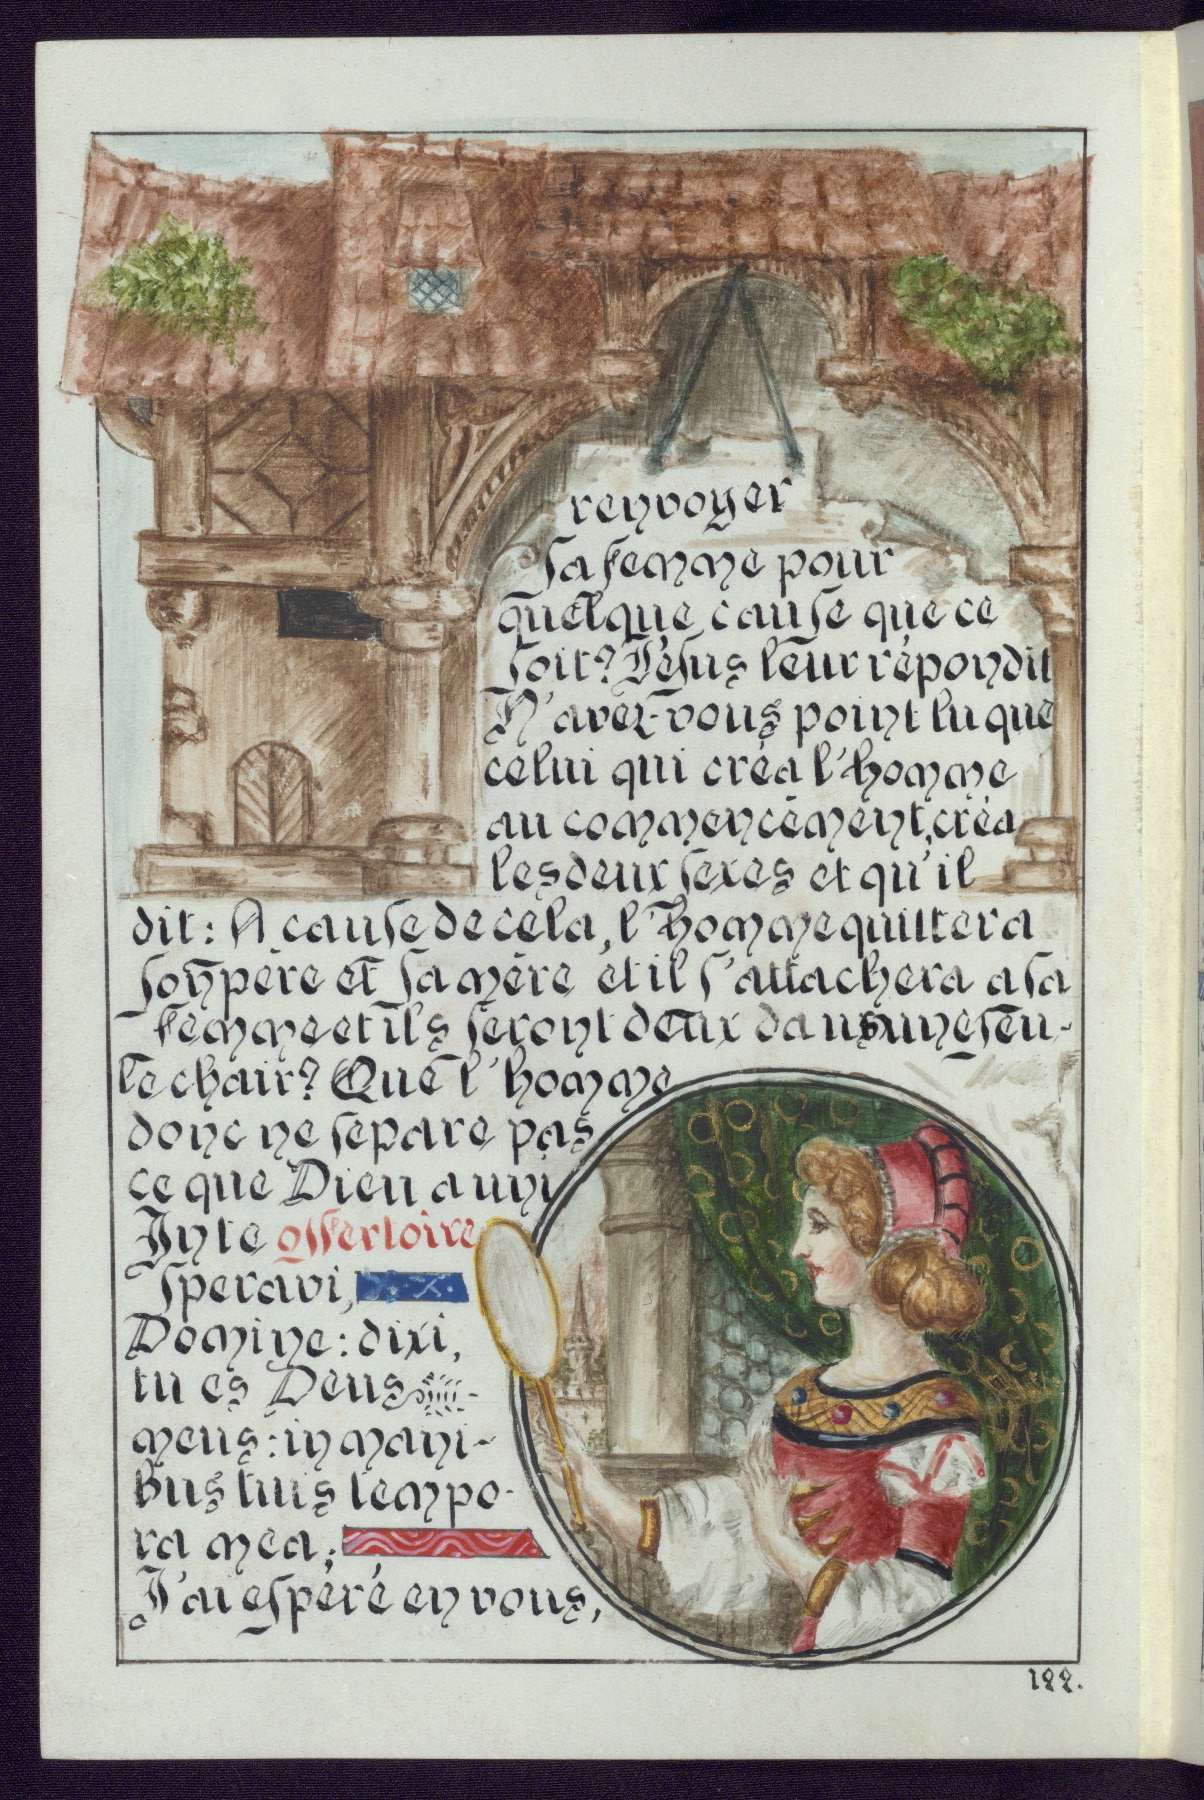 renvoyer
sa femme pour
quelque cause que ce
soit? Jésus leur répondit
N'avez-vous point lu que
celui qui créa l'homme
au commencement, créa
les deux sexes et qu'il
dit: A cause de cela, l'homme quittera
son père et sa mère et il s'attachera a sa
femme et ils seront deux dans une seu-
le chair? Que l'homme
donc ne separe pas
ce que Dieu a uni
In te offertoire
speravi,
Domine: dixi,
tu es Deus
meus: in mani-
bus tuis tempo-
ra mea;
J'ai espéré en vous,
122.